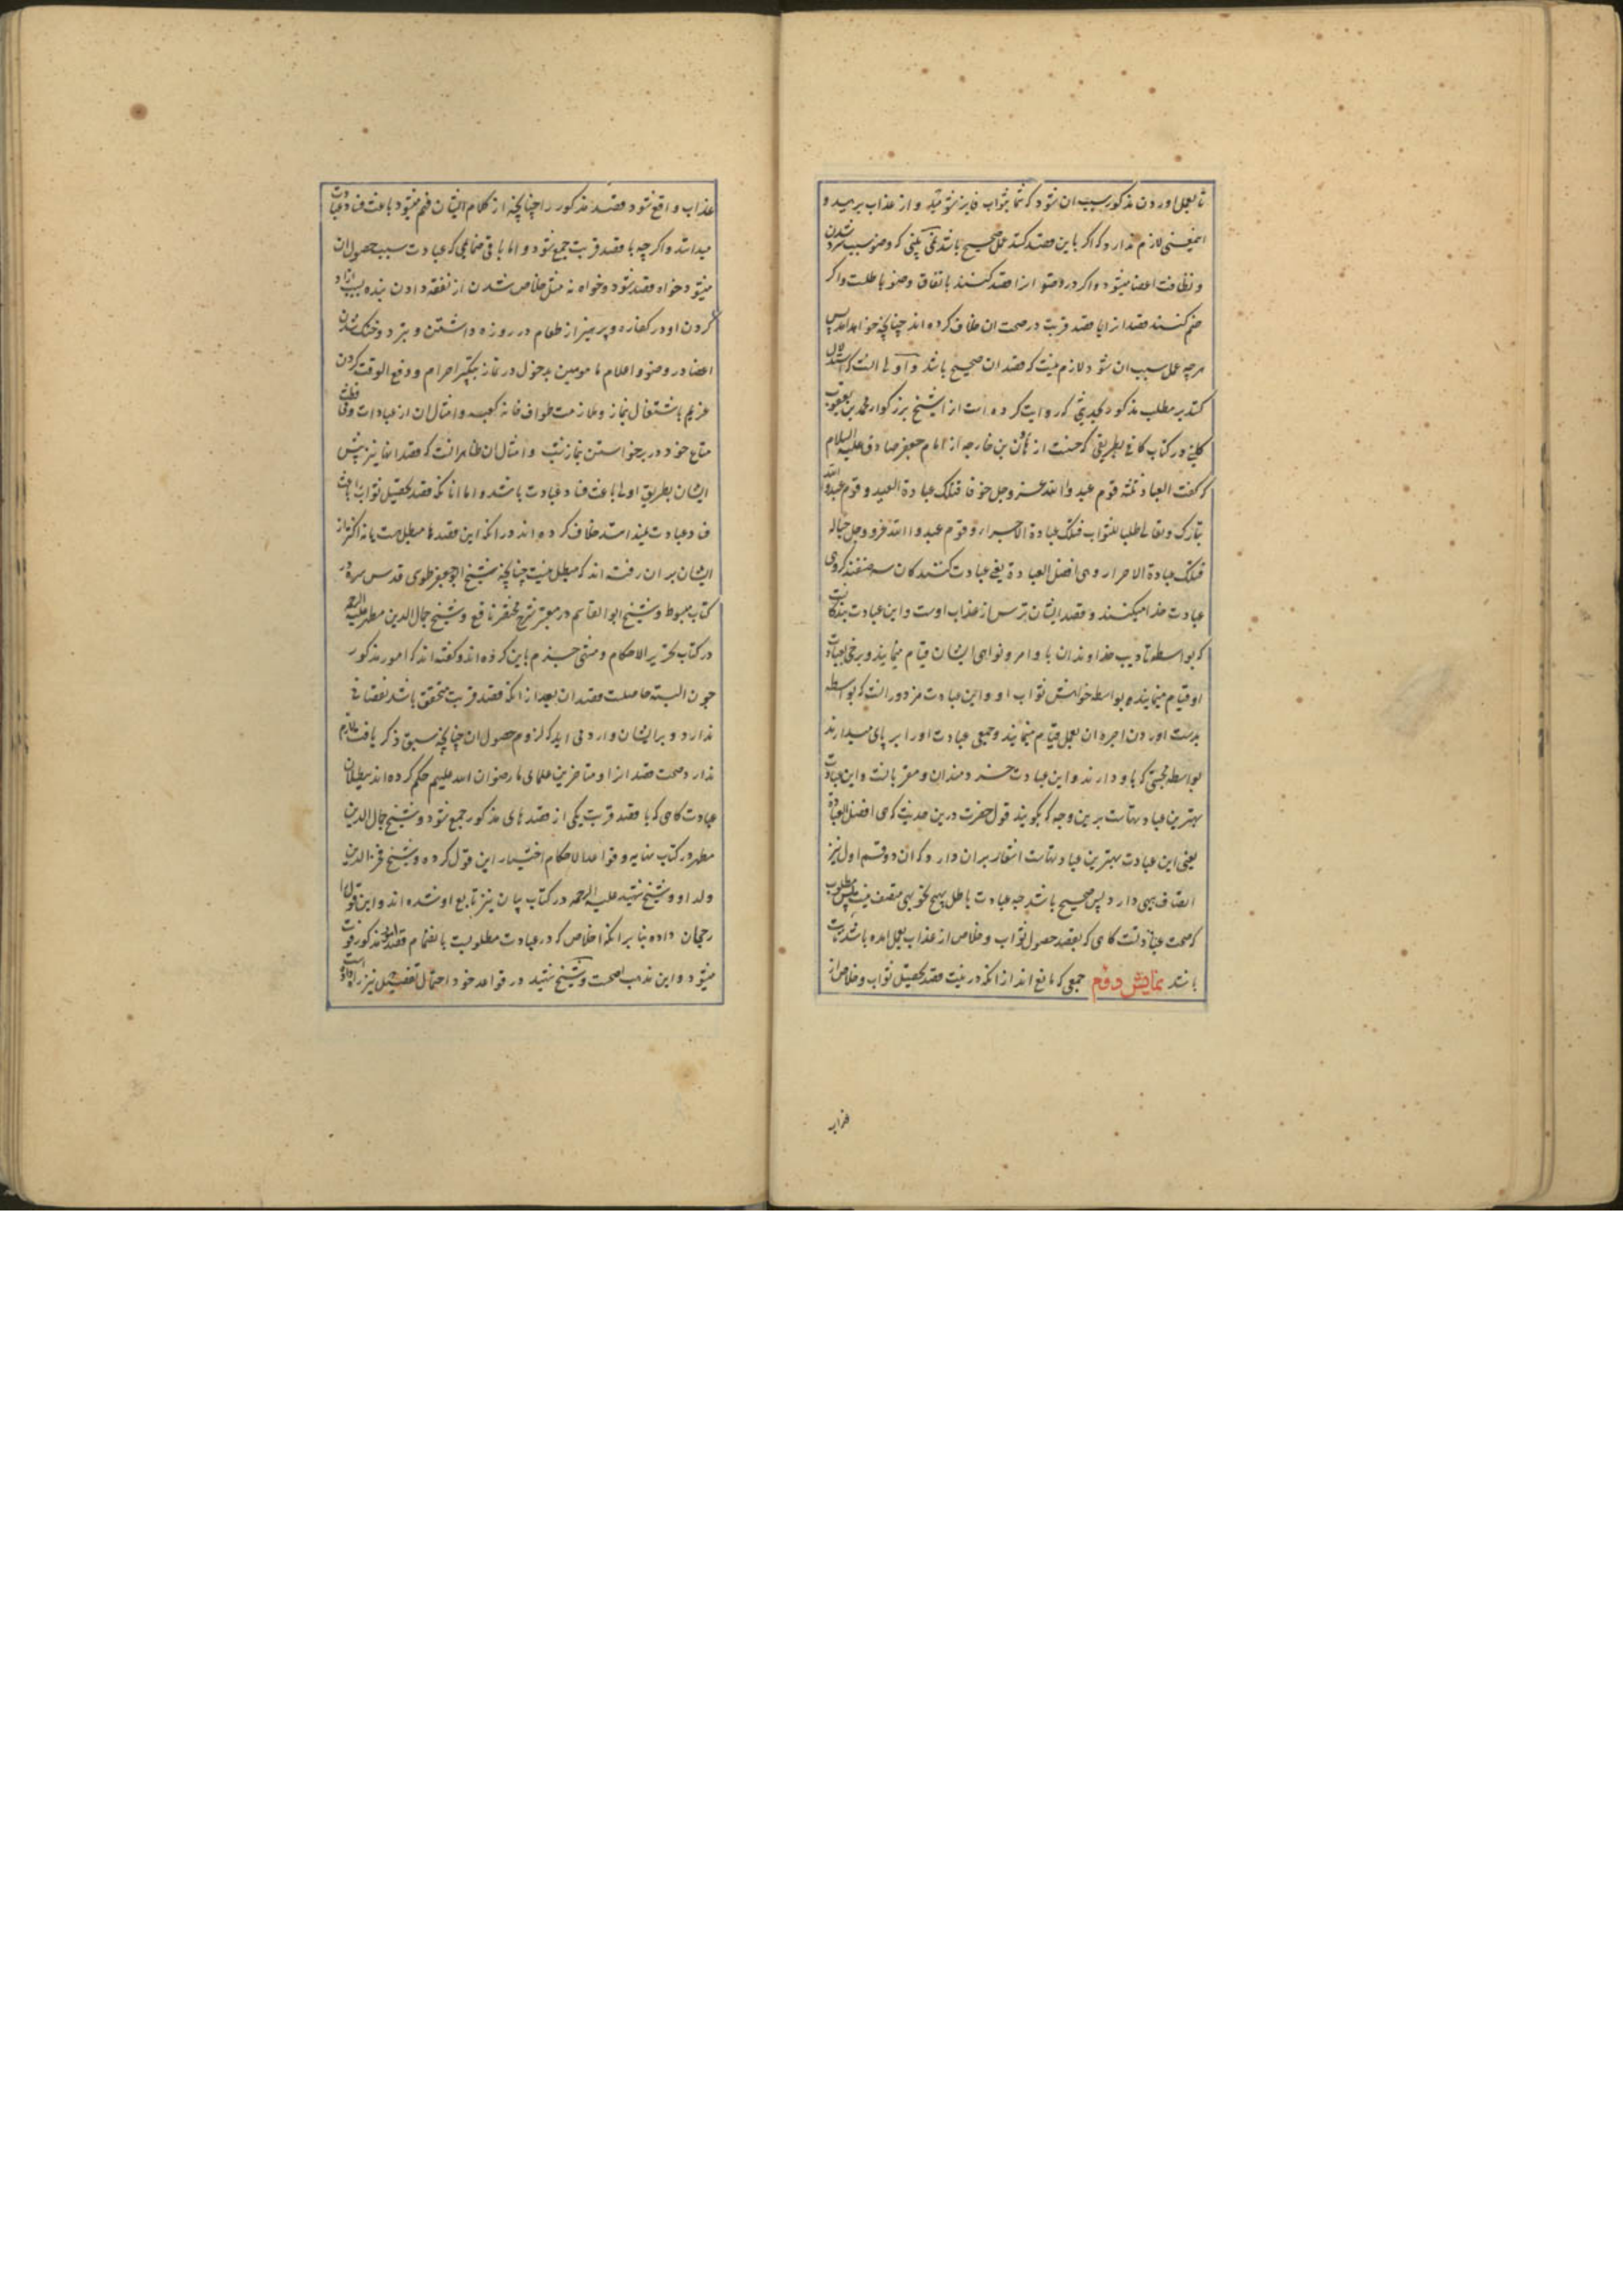 تا بعمل اوردن مذکور سبب ان شود که شما بثواب فایز شوید و از عذاب برهید و
اینمعنی لازم ندارد که اگر باین قصد کنند عمل صحیح باشد نمی بینی که وضو سبب سرد شدن
و نظافت اعضا میشود و اگر در وضو انرا قصد کنند باتفاق وضو باطلست و اگر
ضم کنند قصد انرا با قصد قربت در صحت ان خلاف کرده اند چنانچه خواهد امد پس
هرچه عمل سبب ان شود لازم نیست که قصد ان صحیح باشد و اولی انست که استدلال
کنند بر مطلب مذکور بحدیثی که روایت کرده است انرا شیخ بزرکوار محمد بن یعقوب
کلینی در کتاب کافی بطریقی که حسنست از هرون بن خارجه از امام جعفر صادق علیه السلام
که گفت العباد ثلثة قوم عبدوا الله عز وجل خوفا فتلک عبادة العبید و قوم عبدوا الله
تبارک و تعالی طلبا للثواب فتلک عبادة الاجراء و قوم عبدوا الله عز و جل حبا له
فتلک عبادة الاحرار و هی افضل العبادة یعنی عبادت کنندکان سه صنفند کروهی
عبادت خدا میکنند و قصد ایشان ترس از عذاب اوست و این عبادت بندکانست
که بواسطه تادیب خداوندان باوامر و نواهی ایشان قیام مینمایند و برخی بعبادت
او قیام مینمایند بواسطه خواهش ثواب او و این عبادت مزدورانست که بواسطه
بدست اوردن اجره ان بعمل قیام مینمایند و جمعی عبادت او را بر پای میدارند
بواسطه محبتی که باو دارند و این عبادت خردمندان و مقربانست و این عبادت
بهترین عبادتهاست برین وجه که بگویند قول حضرت درین حدیث که هی افضل العبادة
یعنی این عبادت بهترین عبادتهاست اشعار بران دارد که ان دو قسم اول نیز
اتصاف بهی دارد پس صحیح باشد چه عبادت باطل بهیچ خوبی متصف نیست پس مطلوب
که صحت عبادتست کاهی که بقصد حصول ثواب و خلاص از عذاب بعمل امده باشد ثابت
باشد نمایش دوم جمعی که مانع اند از انکه در نیت قصد تحصیل ثواب و خلاص از
عذاب
عذاب واقع شود قصد مذکور را چنانچه از کلام ایشان فهم میشود باعث فساد عبادت
میدانند و اگر چه با قصد قربت جمع شود و اما باقی ضمایمی که عبادت سبب حصول ان
میشود خواه قصد شود و خواه نه مثل خلاص شدن از نفقه دادن بنده بسبب ازاد
کردن او در کفاره و پرهیز از طعام در روزه داشتن و تبرد و خنک شدن
اعضا در وضو و اعلام مامومین بدخول در نماز بتکبیر احرام و دفع الوقت کردن
غریم باشتغال بنماز و ملازمت طواف خانه کعبه و امثال ان از عبادات و محافظت
متاع خود در برخواستن بنماز شب و امثال ان ظاهر انست که قصد انها نیز پیش
ایشان بطریق اولی باعث فساد عبادت باشد و اما انانکه قصد تحصیل ثواب را باعث
فساد عبادت نمیدانند خلاف کرده اند در انکه این قصدها مبطل هست یا نه اکثر از
ایشان بر ان رفته اند که مبطل نیست چنانچه شیخ ابو جعفر طوسی قدس سره در
کتاب مبسوط و شیخ ابو القاسم در معتبر شرح مختصر نافع و شیخ جمال الدین مطهر علیه الرحمه
در کتاب تحریر الاحکام و منتهی جزم باین کرده اند و کفته اند که امور مذکور
چون البته حاصلست قصد ان بعد از انکه قصد قربت متحقق باشد نقصانی
ندارد و بر ایشان وارد می اید که لزوم حصول ان چنانچه سبق ذکر یافت لازم
ندارد صحت قصد انرا و متاخرین علمای ما رضوان الله علیهم حکم کرده اند ببطلان
عبادت کاهی که با قصد قربت یکی از قصدهای مذکور جمع شود و شیخ جمال الدین
مطهر در کتاب نهایه و قواعد الاحکام اختیار این قول کرده و شیخ فخر الدین
ولد او و شیخ شهید علیه الرحمه در کتاب بیان نیز تابع او شده اند و این قول را
رجحان داده بنا بر انکه اخلاص که در عبادت مطلوبست بانضمام قصد امور مذکور فوت
میشود و این مذهب اصحست و شیخ شهید در قواعد خود احتمال تفصیل نیز داده است